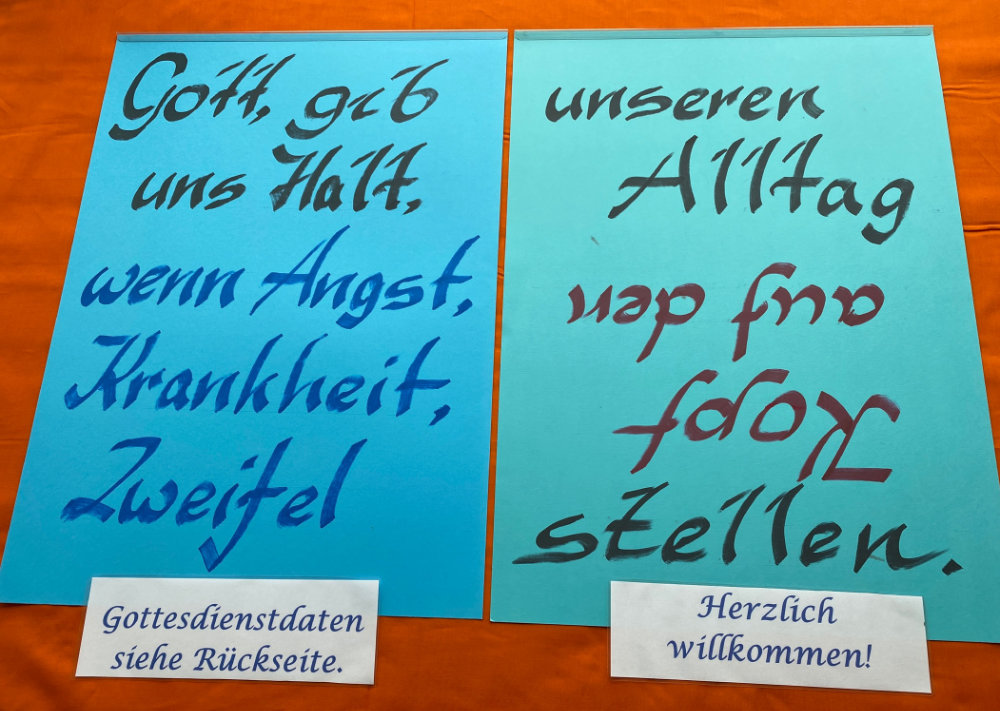 Gott, gib
uns Halt,
wenn Angst,
Krankheit,
Zweifel
Gottesdienstdaten
siehe Rückseite.
unseren
Alltag
auf den
Kopf
stellen.
Herzlich
willkommen!